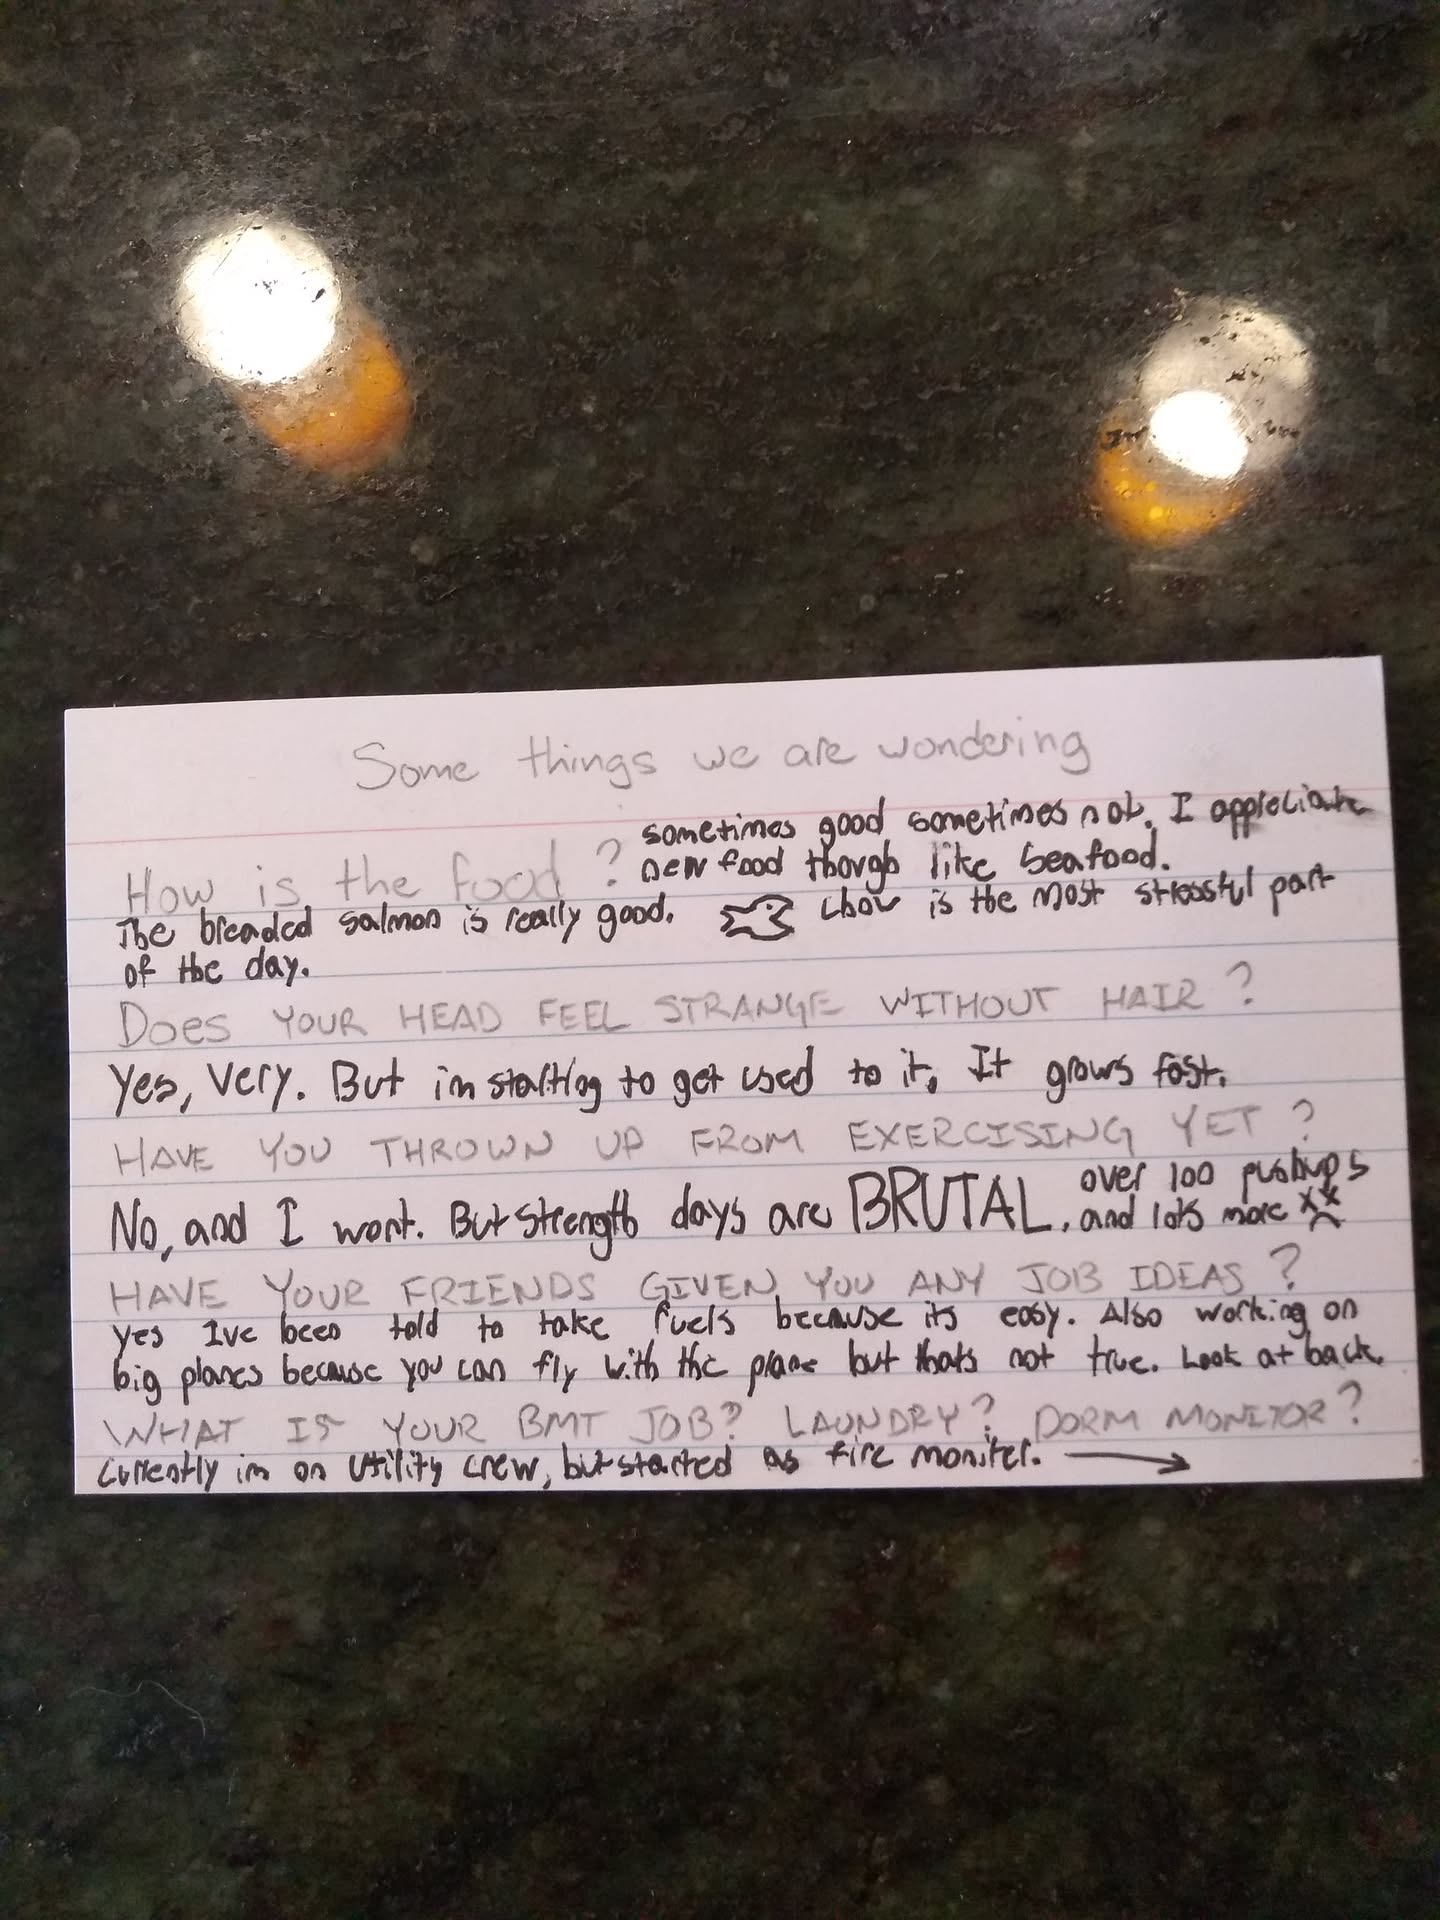 Some things we are wondering
sometimes good sometimes not. I appreciate
How is the food? new food though like seafood.
The breaded salmon is really good. chow is the most stressful part
of the day.
Does YOUR HEAD FEEL STRANGE WITHOUT HAIR?
Yes, Very. But im starting to get used to it, It grows fast.
HAVE YOU THROWN UP FROM EXERCISING YET?
over 100 pushups
No, and I wont. But strength days are BRUTAL. and lots more
HAVE YOUR FRIENDS GIVEN YOU ANY JOB IDEAS?
yes Ive been told to take fuels because its easy. Also working on
big planes because you can fly with the plane but thats not true. Look at back.
WHAT IS YOUR BMT JOB? LAUNDRY? DORM MONITOR?
currently im on utility crew, but started as fire moniter.